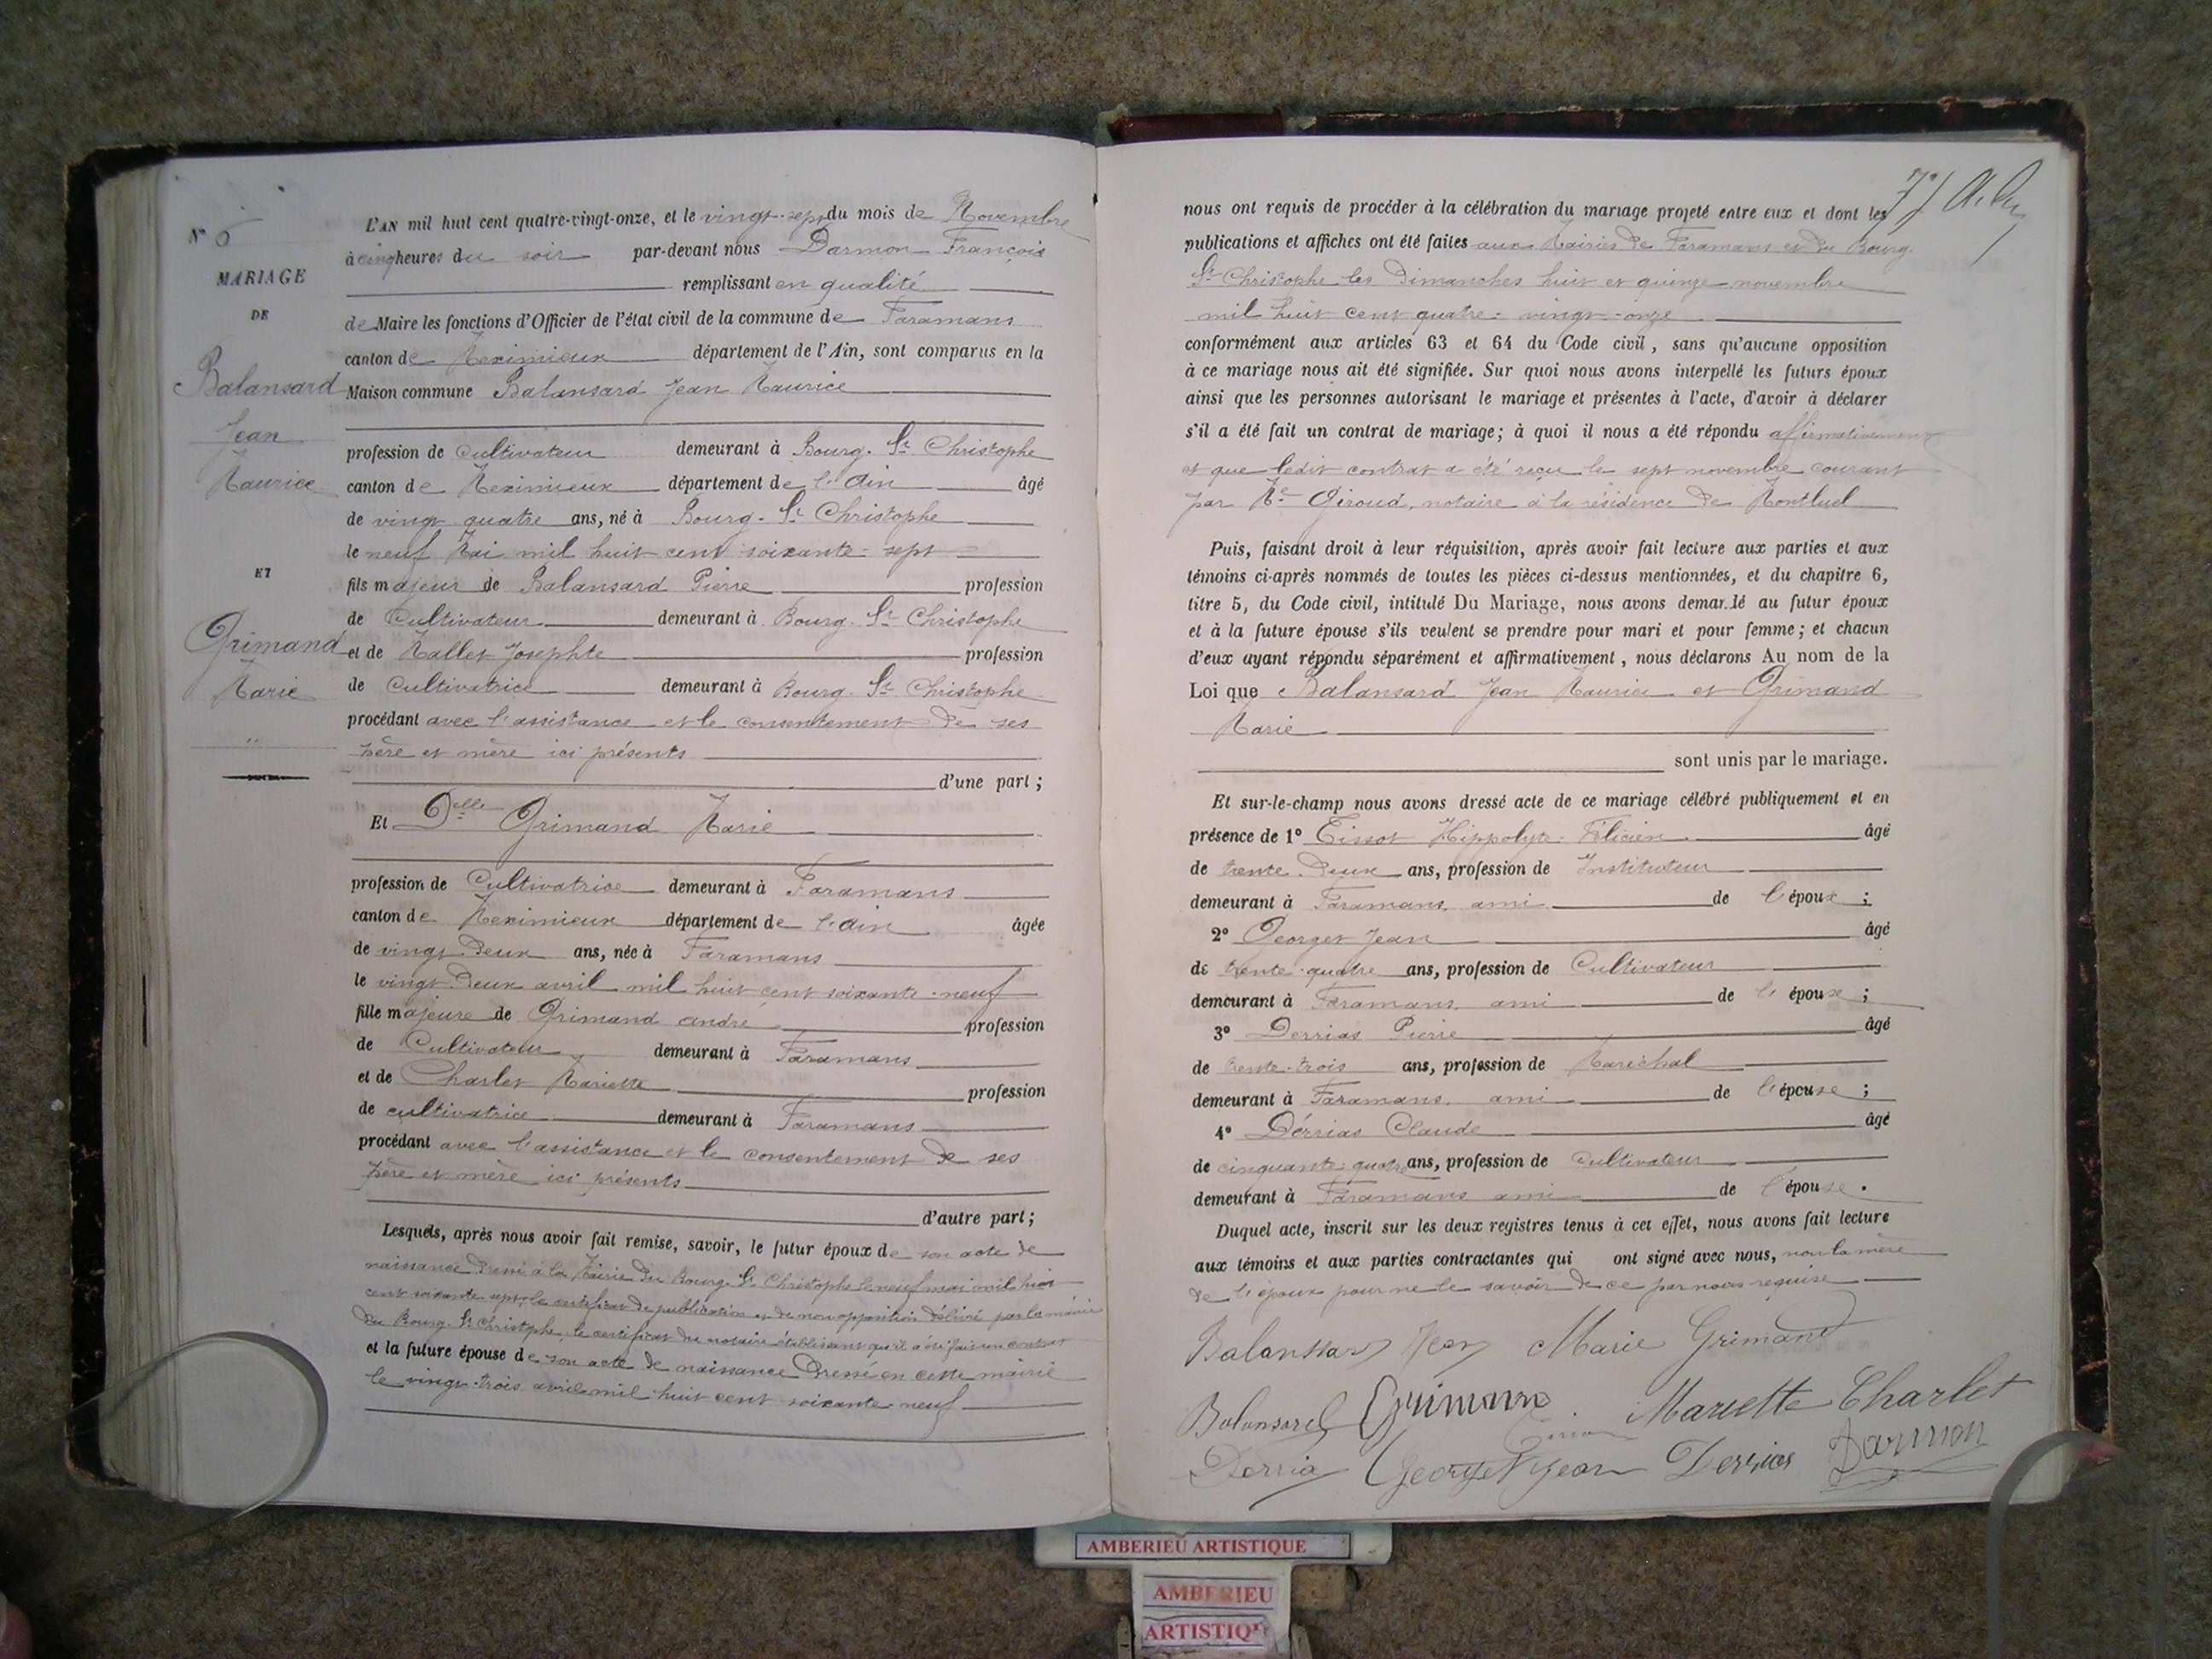 N° 6
MARIAGE
DE
Balansard
Jean
Maurice
ET
Grimand
Marie
"
L'AN mil huit cent quatre-vingt-onze, et le vingt-sept du mois de Novembre
à cinq heures du soir par-devant nous Darmon François
remplissant en qualité
de Maire les fonctions d'Officier de l'état civil de la commune de Faramans
canton de Meximieux département de l'Ain, sont comparus en la
Maison commune Balansard Jean Maurice
profession de Cultivateur demeurant à Bourg-St Christophe
canton de Meximieux département de l'Ain âgé
de vingt quatre ans, né à Bourg-St Christophe
le neuf Mai mil huit cent soixante-sept
fils majeur de Balansard Pierre profession
de Cultivateur demeurant à Bourg-St Christophe
et de Mallet Josephte profession
de Cultivatrice demeurant à Bourg-St Christophe
procédant avec l'assistance et le consentement de ses
père et mère ici présents
d'une part;
Et Delle Grimand Marie
profession de Cultivatrice demeurant à Faramans
canton de Meximieux département de l'Ain âgée
de vingt-deux ans, née à Faramans
le vingt-deux avril mil huit cent soixante-neuf
fille majeure de Grimand André profession
de Cultivateur demeurant à Faramans
et de Charlet Mariette profession
de cultivatrice demeurant à Faramans
procédant avec l'assistance et le consentement de ses
père et mère ici présents
d'autre part;
Lesquels, après nous avoir fait remise, savoir, le futur époux de son acte de
naissance dressé à la Mairie du Bourg St Christophe le neuf mai mil huit
cent soixante-sept, le certificat de publication et de non opposition délivré par la mairie
du Bourg St Christophe, le certificat du notaire établissant qu'il a été fait un contrat
et la future épouse de son acte de naissance Dressé en cette mairie
le vingt-trois avril mil huit cent soixante-neuf
nous ont requis de procéder à la célébration du mariage projeté entre eux et dont les
publications et affiches ont été faites aux Mairies de Faramans et du Bourg-
St Christophe les Dimanches huit et quinze novembre
mil huit cent quatre-vingt-onze
conformément aux articles 63 et 64 du Code civil, sans qu'aucune opposition
à ce mariage nous ait été signifiée. Sur quoi nous avons interpellé les futurs époux
ainsi que les personnes autorisant le mariage et présentes à l'acte, d'avoir à déclarer
s'il a été fait un contrat de mariage; à quoi il nous a été répondu affirmativement
et que ledit contrat a été reçu le sept novembre courant
par Me Giroud, notaire à la résidence de Montluel
Puis, faisant droit à leur réquisition, après avoir fait lecture aux parties et aux
témoins ci-après nommés de toutes les pièces ci-dessus mentionnées, et du chapitre 6,
titre 5, du Code civil, intitulé Du Mariage, nous avons demandé au futur époux
et à la future épouse s'ils veulent se prendre pour mari et pour femme; et chacun
d'eux ayant répondu séparément et affirmativement, nous déclarons Au nom de la
Loi que Balansard Jean Maurice et Grimand
Marie
sont unis par le mariage.
Et sur-le-champ nous avons dressé acte de ce mariage célébré publiquement et en
présence de 1° Tissot Hippolyte Félicien âgé
de trente-deux ans, profession de Instituteur
demeurant à Faramans, ami de l'époux;
2° Georget Jean âgé
de trente-quatre ans, profession de Cultivateur
demeurant à Faramans, ami de l'épouse;
3° Derrias Pierre âgé
de trente-trois ans, profession de Maréchal
demeurant à Faramans, ami de l'épouse;
4° Dérrias Claude âgé
de cinquante-quatre ans, profession de Cultivateur
demeurant à Faramans ami de l'épouse.
Duquel acte, inscrit sur les deux registres tenus à cet effet, nous avons fait lecture
aux témoins et aux parties contractantes qui ont signé avec nous, non la mère
de l'époux pour ne le savoir de ce par nous requise
Balansard Jean Marie Grimand
Balansard Grimand Mariette Charlet
Tissot
Derria Georget Jean Derrias Darmon
AMBERIEU ARTISTIQUE
AMBERIEU
ARTISTIQUE